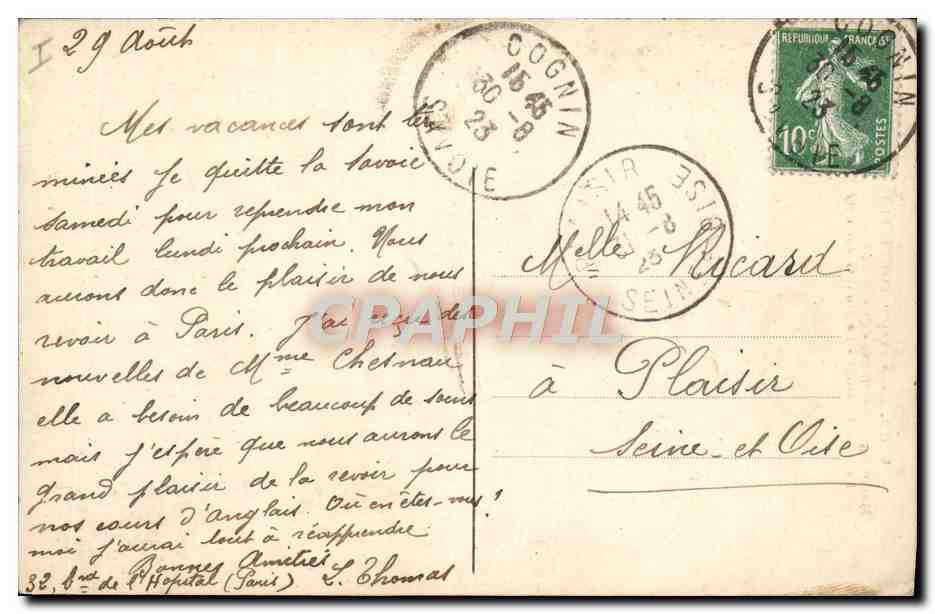 29 Août
Mes vacances sont ter
minées je quitte la Savoie
samedi pour reprendre mon
travail lundi prochain. Nous
aurons donc le plaisir de nous
revoir à Paris. J'ai reçu des
nouvelles de Mme Chesnau
elle a besoin de beaucoup de soins
mais j'espère que nous aurons le
grand plaisir de la revoir pour
nos cours d'anglais. Où en êtes-vous!
moi j'aurai tout à réapprendre.
Bonnes Amitiés
32, bard de l'Hôpital (Paris) L. Thomas
COGNIN
15 45
30 -8
23
SAVOIE
REPUBLIQUE FRANÇAISE
10c
POSTES
COGNIN
15 45
30 -8
23
PLAISIR
14 45
-8
23
SEINE-ET-OISE
Melle Ricard
à Plaisir
Seine-et-Oise
CPAPHIL